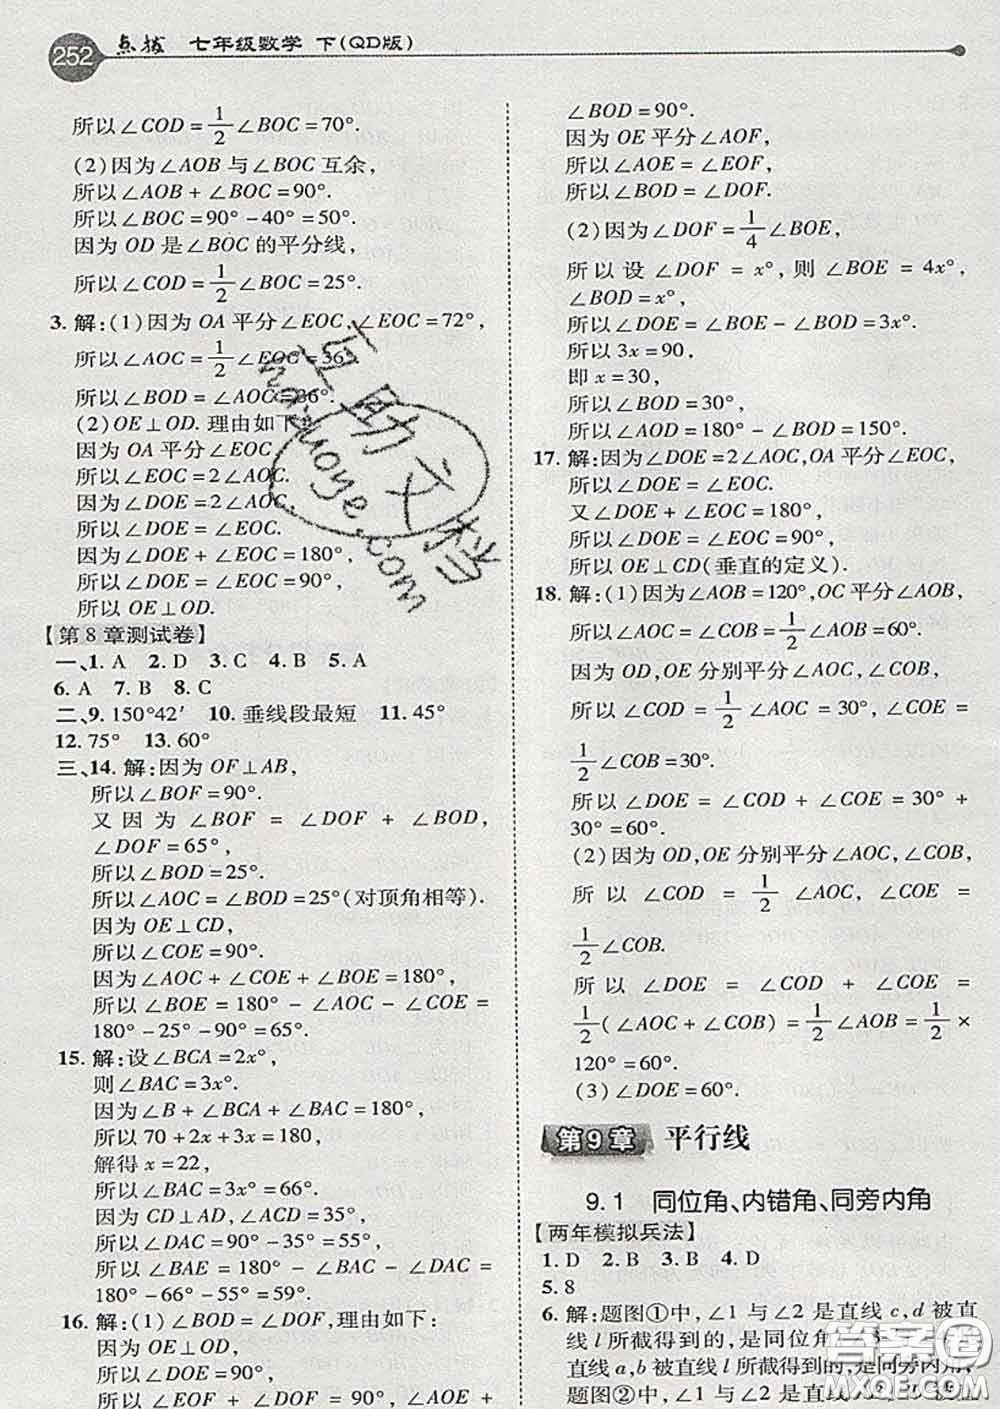 252 点拨 七年级数学 下(QD版)
所以∠COD=1/2∠BOC=70°.
(2)因为∠AOB与∠BOC互余,
所以∠AOB+∠BOC=90°.
所以∠BOC=90°-40°=50°.
因为OD是∠BOC的平分线,
所以∠COD=1/2∠BOC=25°.
3.解:(1)因为OA平分∠EOC,∠EOC=72°,
所以∠AOC=1/2∠EOC=36°.
所以∠BOD=∠AOC=36°.
(2)OE⊥OD.理由如下:
因为OA平分∠EOC,
所以∠EOC=2∠AOC.
因为∠DOE=2∠AOC,
所以∠DOE=∠EOC.
因为∠DOE+∠EOC=180°,
所以∠DOE=∠EOC=90°,
所以OE⊥OD.
【第8章测试卷】
一、1.A 2.D 3.C 4.B 5.A
6.A 7.B 8.C
二、9.150°42′ 10.垂线段最短 11.45°
12.75° 13.60°
三、14.解:因为OF⊥AB,
所以∠BOF=90°.
又因为∠BOF=∠DOF+∠BOD,
∠DOF=65°,
所以∠BOD=25°.
所以∠AOC=∠BOD=25°(对顶角相等).
因为OE⊥CD,
所以∠COE=90°.
因为∠AOC+∠COE+∠BOE=180°,
所以∠BOE=180°-∠AOC-∠COE=
180°-25°-90°=65°.
15.解:设∠BCA=2x°,
则∠BAC=3x°.
因为∠B+∠BCA+∠BAC=180°,
所以70+2x+3x=180,
解得x=22,
所以∠BAC=3x°=66°.
因为CD⊥AD,∠ACD=35°,
所以∠DAC=90°-35°=55°,
所以∠BAE=180°-∠BAC-∠DAC=
180°-66°-55°=59°.
16.解:(1)∠BOD=∠DOF,理由如下:
因为OD⊥OE,
所以∠EOF+∠DOF=90°,∠AOE+
∠BOD=90°.
因为OE平分∠AOF,
所以∠AOE=∠EOF,
所以∠BOD=∠DOF.
(2)因为∠DOF=1/4∠BOE,
所以设∠DOF=x°,则∠BOE=4x°,
∠BOD=x°.
所以∠DOE=∠BOE-∠BOD=3x°.
所以3x=90,
即x=30,
所以∠BOD=30°,
所以∠AOD=180°-∠BOD=150°.
17.解:因为∠DOE=2∠AOC,OA平分∠EOC,
所以∠DOE=∠EOC.
又∠DOE+∠EOC=180°,
所以∠DOE=∠EOC=90°,
所以OE⊥CD(垂直的定义).
18.解:(1)因为∠AOB=120°,OC平分∠AOB,
所以∠AOC=∠COB=1/2∠AOB=60°.
因为OD,OE分别平分∠AOC,∠COB,
所以∠COD=1/2∠AOC=30°,∠COE=
1/2∠COB=30°.
所以∠DOE=∠COD+∠COE=30°+
30°=60°.
(2)因为OD,OE分别平分∠AOC,∠COB,
所以∠COD=1/2∠AOC,∠COE=
1/2∠COB.
所以∠DOE=∠COD+∠COE=
1/2(∠AOC+∠COB)=1/2∠AOB=1/2×
120°=60°.
(3)∠DOE=60°.
第9章 平行线
9.1 同位角、内错角、同旁内角
【两年模拟兵法】
1.D 2.B 3.B 4.D
5.8
6.解:题图①中,∠1与∠2是直线c,d被直
线l所截得到的,是同位角
直线a,b被直线l所截得到的,是同旁内角.
题图②中,∠1与∠2是直线
互助文档
huzhuoye.com
答案圈
MXQE.COM